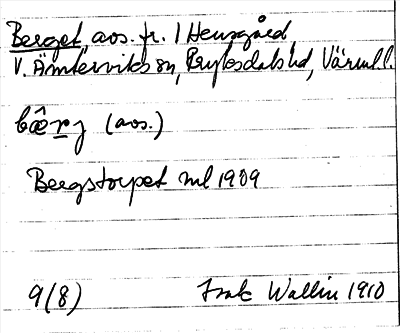 Berget avs. fr. 1 Hensgård,
V. Ämterviks sn, Fryksdals hd, Värml. l.
bærj (avs.)
Bergstorpet ml 1909
9(8) Wallin 1910